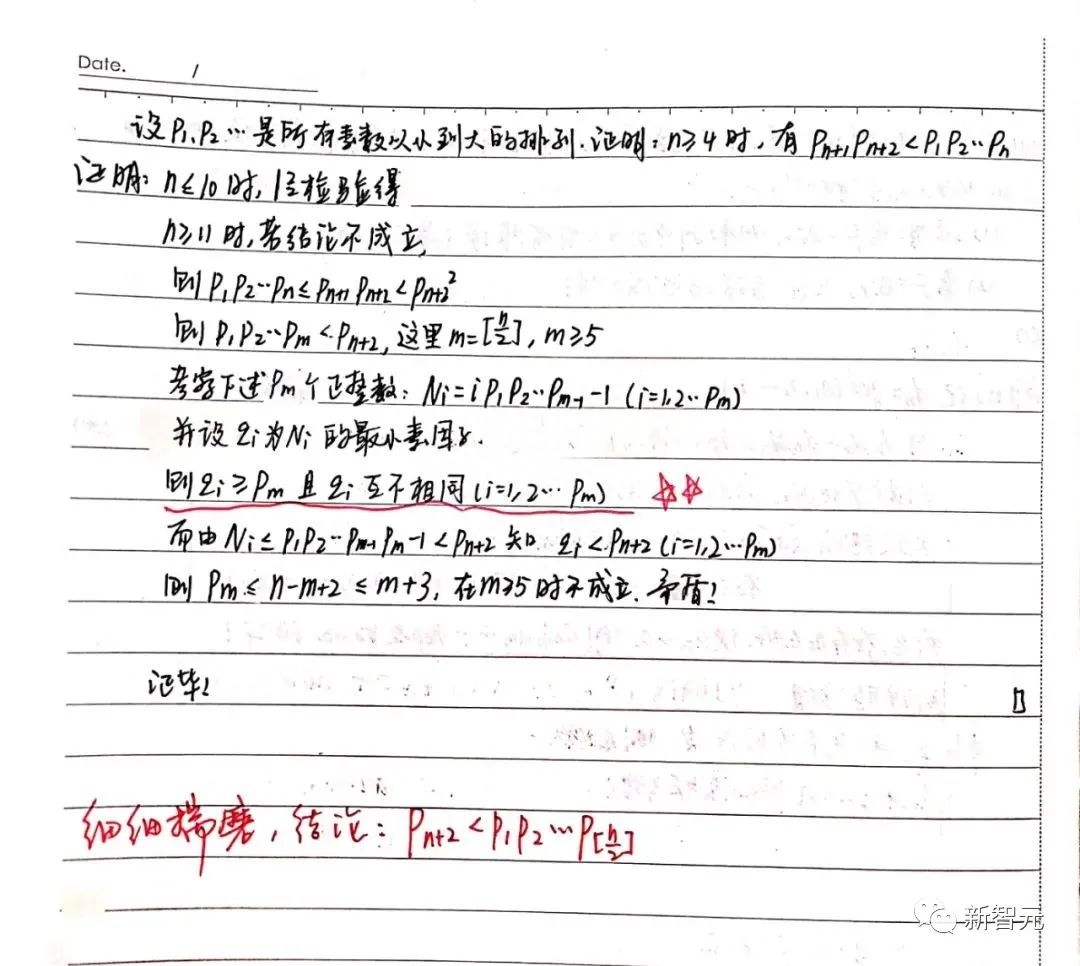 Date. /
设 P₁、P₂ … 是所有素数从小到大的排列. 证明: n≥4 时, 有 Pₙ₊₁Pₙ₊₂ < P₁P₂…Pₙ
证明: n≤10 时, 检验显得
n≥11 时, 若结论不成立,
则 P₁P₂…Pₙ ≤ Pₙ₊₁Pₙ₊₂ < Pₙ₊₂²
则 P₁P₂…Pₘ < Pₙ₊₂, 这里 m=[n/2], m≥5
考察下述 Pₘ 个正整数: Nᵢ = iP₁P₂…Pₘ₋₁-1 (i=1,2…Pₘ)
并设 qᵢ 为 Nᵢ 的最小素因子.
则 qᵢ ≥ Pₘ 且 qᵢ 互不相同 (i=1,2…Pₘ) ☆☆
而由 Nᵢ ≤ P₁P₂…Pₘ₋₁Pₘ-1 < Pₙ₊₂ 知 qᵢ < Pₙ₊₂ (i=1,2…Pₘ)
则 Pₘ ≤ n-m+2 ≤ m+3, 在 m≥5 时不成立. 矛盾!
证毕!
细细揣磨, 结论: Pₙ₊₂ < P₁P₂…P[n/2]
新智元